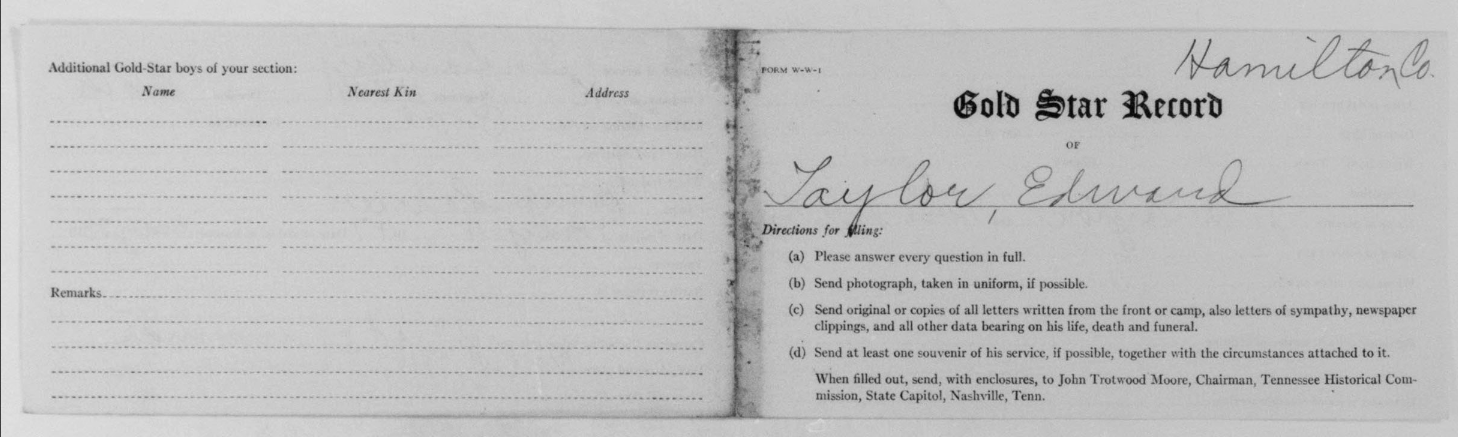 Additional Gold-Star boys of your section:
Name Nearest Kin Address
Remarks
FORM W-W-1
Hamilton Co.
Gold Star Record
OF
Taylor, Edward
Directions for filing:
(a) Please answer every question in full.
(b) Send photograph, taken in uniform, if possible.
(c) Send original or copies of all letters written from the front or camp, also letters of sympathy, newspaper
clippings, and all other data bearing on his life, death and funeral.
(d) Send at least one souvenir of his service, if possible, together with the circumstances attached to it.
When filled out, send, with enclosures, to John Trotwood Moore, Chairman, Tennessee Historical Com-
mission, State Capitol, Nashville, Tenn.